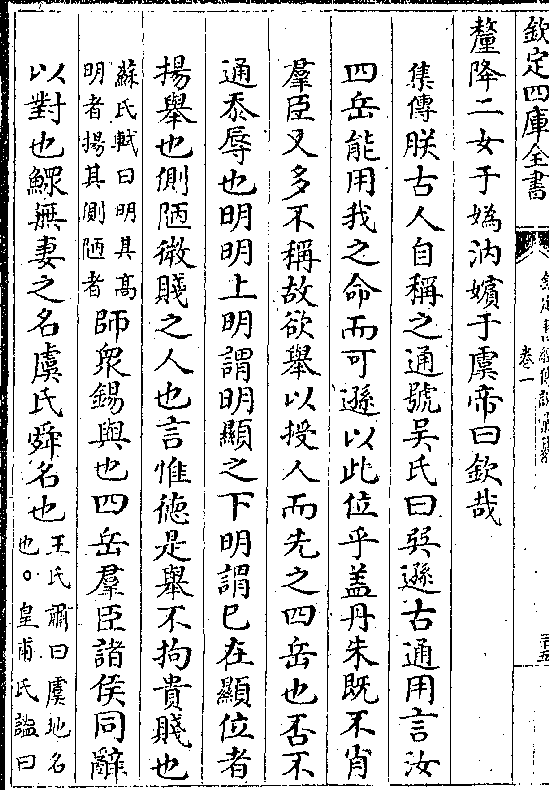 欽定四庫全書
卷一
釐降二女于媯汭嬪于虞帝曰欽哉
集傳朕古人自稱之通號吳氏曰巽遜古通用言汝
四岳能用我之命而可遜以此位乎蓋丹朱既不肖
羣臣又多不稱故欲舉以授人而先之四岳也否不
通忝辱也明明上明謂明顯之下明謂已在顯位者
揚舉也側陋微賤之人也言惟德是舉不拘貴賤也
蘇氏軾曰明其高
明者揚其側陋者
師衆錫與也四岳羣臣諸侯同辭
以對也鰥無妻之名虞氏舜名也
王氏肅曰虞地名
也○皇甫氏謐曰